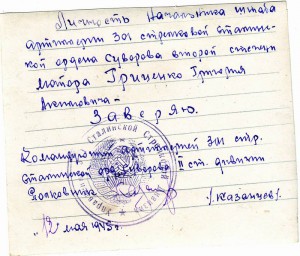 Личность Начальника штаба
артиллерии 301 стрелковой Сталин-
ской ордена Суворова второй степени
майора Гриценко Григория
Акимовича-
Заверяю.
Командующий артиллерией 301 стр.
Сталинской орд. Суворова II ст. дивизии
Полковник /Казанцев/.
"12" мая 1945г.